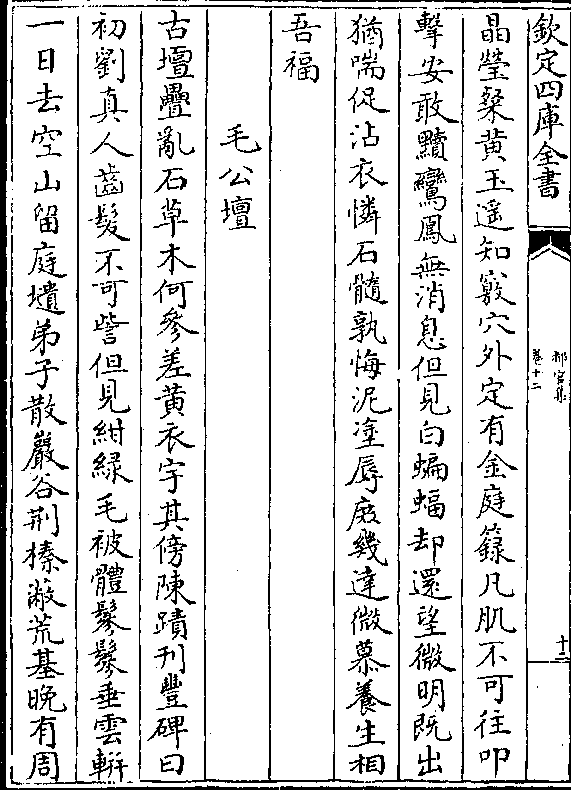 欽定四庫全書
都官集
卷十二
十二
晶瑩粲黄玉遥知竅穴外定有金庭籙凡肌不可往叩
擊安敢黷鸞鳳無消息但見白蝙蝠却還望微明既出
猶喘促沾衣憐石髓孰悔泥塗辱庶幾達微慕養生相
吾福
毛公壇
古壇疊亂石草木何參差黄衣宇其傍陳蹟刋豐碑曰
初劉真人齒髮不可訾但見紺緑毛被體鬖鬖垂雲軿
一日去空山留庭墳弟子散巖谷荆榛蔽荒基晩有周